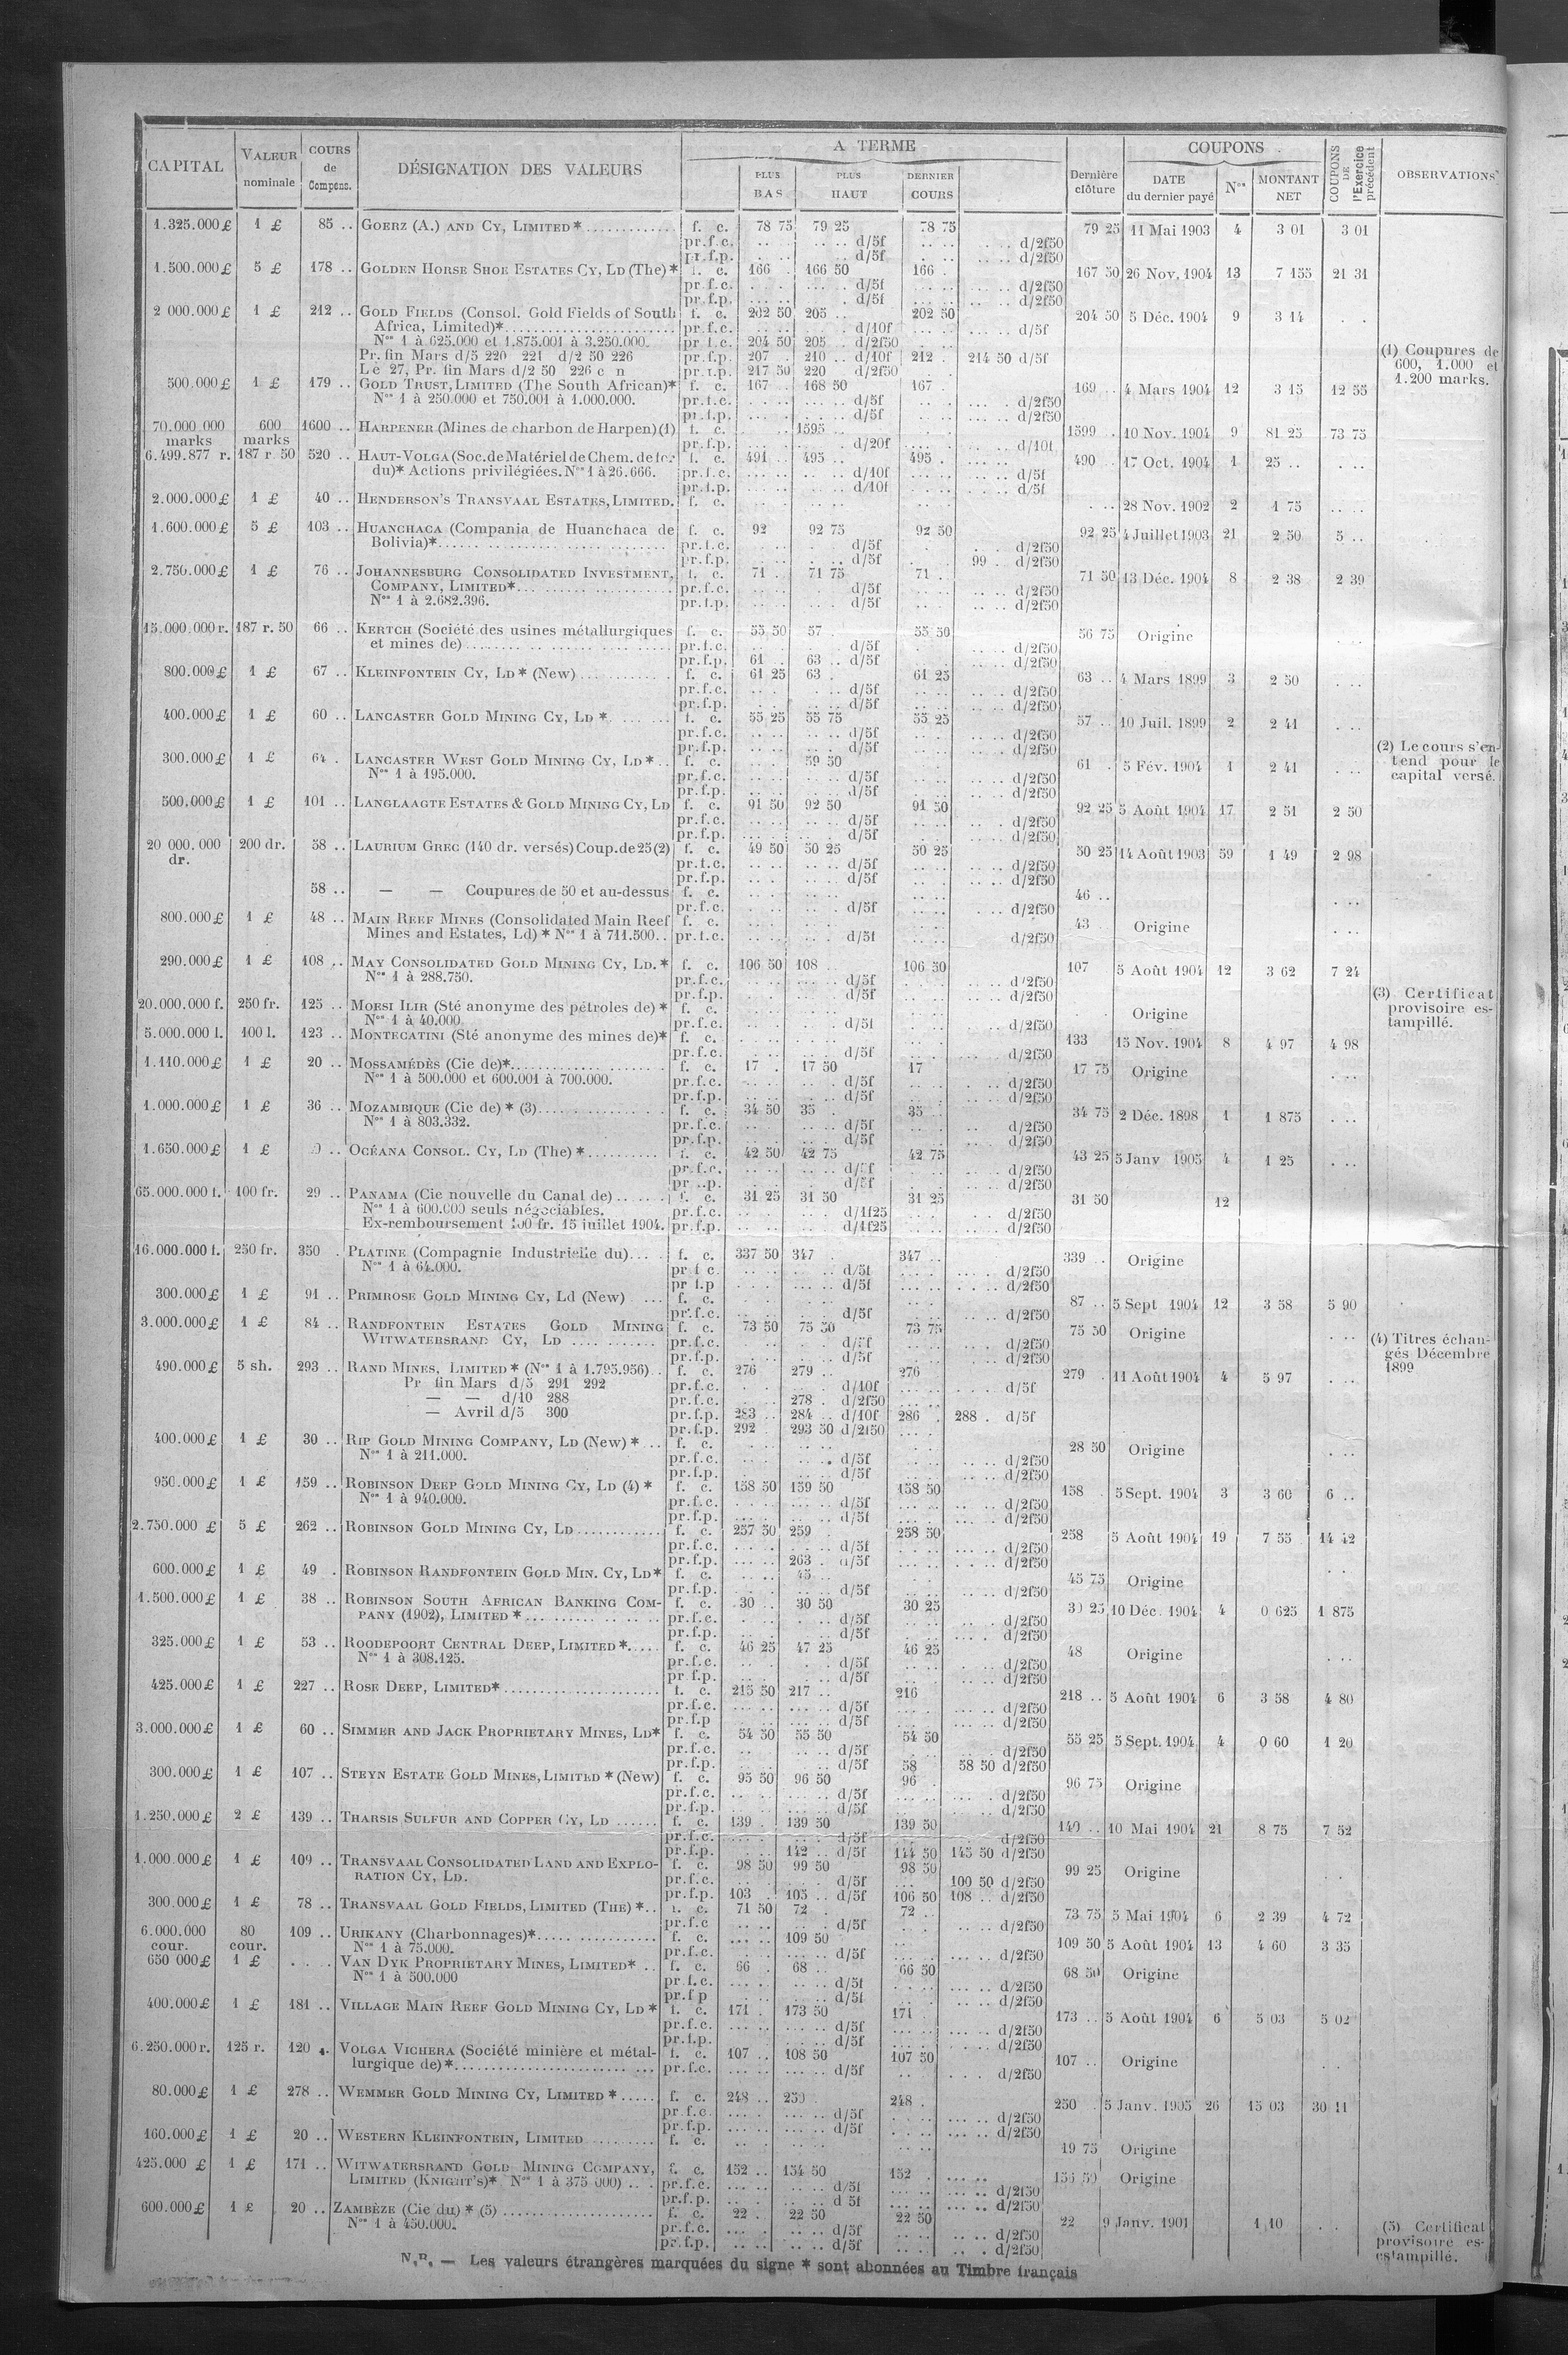 CAPITAL | VALEUR nominale | COURS de Compens. | DÉSIGNATION DES VALEURS | A TERME | PLUS BAS | PLUS HAUT | DERNIER COURS | Dernière clôture | COUPONS | DATE du dernier payé | Nos | MONTANT NET | COUPONS DE l'Exercice précédent | OBSERVATIONS
1.325.000 £ 1 £ 85 .. GOERZ (A.) AND CY, LIMITED * f. c. 78 75 79 25 78 75 79 25 11 Mai 1903 4 3 01 3 01
pr.f.c. d/5f d/2f50
pr.f.p. d/5f d/2f50
1.500.000 £ 5 £ 178 .. GOLDEN HORSE SHOE ESTATES CY, LD (The) * f. c. 166 . 166 50 166 . 167 50 26 Nov. 1904 13 7 155 21 31
pr.f.c. d/5f d/2f50
pr.f.p. d/5f d/2f50
2 000.000 £ 1 £ 212 .. GOLD FIELDS (Consol. Gold Fields of South f. c. 202 50 205 .. 202 50 204 50 5 Déc. 1904 9 3 14
Africa, Limited)* pr.f.c. d/10f d/5f
Nos 1 à 625.000 et 1.875.001 à 3.250.000. pr f.c. 204 50 205 . d/2f50
Pr. fin Mars d/5 220 221 d/2 50 226 pr.f.p. 207 . 210 .. d/10f 212 . 214 50 d/5f
Le 27, Pr. fin Mars d/2 50 226 c n pr.f.p. 217 50 220 d/2f50
(1) Coupures de
600, 1.000 et
1.200 marks.
500.000 £ 1 £ 179 .. GOLD TRUST, LIMITED (The South African)* f. c. 167 .. 168 50 167 . 169 .. 4 Mars 1904 12 3 15 12 55
Nos 1 à 250.000 et 750.001 à 1.000.000. pr.f.c. d/5f d/2f50
pr.f.p. d/5f d/2f50
70.000 000 marks 600 marks 1600 .. HARPENER (Mines de charbon de Harpen) (1) f. c. 1595 .. 1599 . 10 Nov. 1904 9 81 25 73 75
pr.f.p. d/20f d/10f
6.499.877 r. 187 r. 50 520 .. HAUT-VOLGA (Soc. de Matériel de Chem. de fer f. c. 491 .. 495 .. 495 . 490 .. 17 Oct. 1904 1 25 ..
du)* Actions privilégiées. Nos 1 à 26.666. pr.f.c. d/10f d/5f
pr.f.p. d/10f d/5f
2.000.000 £ 1 £ 40 .. HENDERSON'S TRANSVAAL ESTATES, LIMITED. f. c. 28 Nov. 1902 2 1 75
1.600.000 £ 5 £ 103 .. HUANCHACA (Compania de Huanchaca de f. c. 92 92 75 92 50 92 25 4 Juillet 1903 21 2 50 5 ..
Bolivia)* pr.f.c. d/5f d/2f50
pr.f.p. d/5f 99 . d/2f50
2.750.000 £ 1 £ 76 .. JOHANNESBURG CONSOLIDATED INVESTMENT, f. c. 71 . 71 75 71 . 71 50 13 Déc. 1904 8 2 38 2 39
COMPANY, LIMITED* pr.f.c. d/5f d/2f50
Nos 1 à 2.682.396. pr.f.p. d/5f d/2f50
15.000.000 r. 187 r. 50 66 .. KERTCH (Société des usines métallurgiques f. c. 55 50 57 . 55 50 56 75 Origine
et mines de) pr.f.c. d/5f d/2f50
pr.f.p. 61 . 63 .. d/5f d/2f50
800.000 £ 1 £ 67 .. KLEINFONTEIN CY, LD * (New) f. c. 61 25 63 . 61 25 63 .. 4 Mars 1899 3 2 50
pr.f.c. d/5f d/2f50
pr.f.p. d/5f d/2f50
400.000 £ 1 £ 60 .. LANCASTER GOLD MINING CY, LD * f. c. 55 25 55 75 55 25 57 .. 10 Juil. 1899 2 2 41
pr.f.c. d/5f d/2f50
pr.f.p. d/5f d/2f50
(2) Le cours s'en-
tend pour le
capital versé.
300.000 £ 1 £ 64 . LANCASTER WEST GOLD MINING CY, LD * f. c. 59 50 61 . 5 Fév. 1904 1 2 41
Nos 1 à 195.000. pr.f.c. d/5f d/2f50
pr.f.p. d/5f d/2f50
500.000 £ 1 £ 101 .. LANGLAAGTE ESTATES & GOLD MINING CY, LD f. c. 91 50 92 50 91 50 92 25 5 Août 1904 17 2 51 2 50
pr.f.c. d/5f d/2f50
pr.f.p. d/5f d/2f50
20 000.000 dr. 200 dr. 58 .. LAURIUM GREC (140 dr. versés) Coup. de 25 (2) f. c. 49 50 50 25 50 25 50 25 14 Août 1903 59 1 49 2 98
pr.f.c. d/5f d/2f50
pr.f.p. d/5f d/2f50
58 .. — — Coupures de 50 et au-dessus f. c. 46 ..
pr.f.c. d/5f d/2f50
800.000 £ 1 £ 48 .. MAIN REEF MINES (Consolidated Main Reef f. c. 43 Origine
Mines and Estates, Ld) * Nos 1 à 711.500 pr.f.c. d/5f d/2f50
290.000 £ 1 £ 108 .. MAY CONSOLIDATED GOLD MINING CY, LD. * f. c. 106 50 108 .. 106 50 107 5 Août 1904 12 3 62 7 24
Nos 1 à 288.750. pr.f.c. d/5f d/2f50
pr.f.p. d/5f d/2f50
(3) Certificat
provisoire es-
tampillé.
20.000.000 f. 250 fr. 125 .. MORSI ILIR (Sté anonyme des pétroles de) * f. c. Origine
Nos 1 à 40.000. pr.f.c. d/5f d/2f50
5.000.000 l. 100 l. 123 .. MONTECATINI (Sté anonyme des mines de)* f. c. 133 15 Nov. 1904 8 4 97 4 98
pr.f.c. d/5f d/2f50
1.110.000 £ 1 £ 20 .. MOSSAMÉDÈS (Cie de)* f. c. 17 . 17 50 17 17 75 Origine
Nos 1 à 500.000 et 600.001 à 700.000. pr.f.c. d/5f d/2f50
pr.f.p. d/5f d/2f50
1.000.000 £ 1 £ 36 .. MOZAMBIQUE (Cie de) * (3) f. c. 34 50 35 . 35 .. 34 75 2 Déc. 1898 1 1 875
Nos 1 à 803.332. pr.f.c. d/5f d/2f50
pr.f.p. d/5f d/2f50
1.650.000 £ 1 £ OCÉANA CONSOL. CY, LD (The) * f. c. 42 50 42 75 42 75 43 25 5 Janv 1905 4 1 25
pr.f.c. d/5f d/2f50
pr.f.p. d/5f d/2f50
65.000.000 f. 100 fr. 29 .. PANAMA (Cie nouvelle du Canal de) f. c. 31 25 31 50 31 25 31 50 12
Nos 1 à 600.000 seuls négociables. pr.f.c. d/1f25 d/2f50
Ex-remboursement 100 fr. 15 juillet 1904. pr.f.p. d/1f25 d/2f50
16.000.000 f. 250 fr. 350 . PLATINE (Compagnie Industrielle du) f. c. 337 50 347 . 347 .. 339 . Origine
Nos 1 à 64.000. pr f c d/5f d/2f50
pr f.p d/5f d/2f50
300.000 £ 1 £ 91 .. PRIMROSE GOLD MINING CY, Ld (New) f. c. 87 .. 5 Sept 1904 12 3 58 5 90
pr.f.c. d/5f d/2f50
3.000.000 £ 1 £ 84 .. RANDFONTEIN ESTATES GOLD MINING f. c. 73 50 75 50 73 75 75 50 Origine
WITWATERSRAND CY, LD pr.f.c. d/5f d/2f50
pr.f.p. d/5f d/2f50
(4) Titres échan-
gés Décembre
1899
490.000 £ 5 sh. 293 .. RAND MINES, LIMITED * (Nos 1 à 1.795.956) f. c. 276 279 .. 276 279 . 11 Août 1904 4 5 97
Pr fin Mars d/5 291 292 pr.f.c. d/10f d/5f
— — d/10 288 pr.f.c. 278 . d/2f50
— Avril d/5 300 pr.f.p. 283 .. 284 .. d/10f 286 . 288 . d/5f
pr.f.p. 292 293 50 d/2f50
400.000 £ 1 £ 30 .. RIP GOLD MINING COMPANY, LD (New) * f. c. 28 50 Origine
Nos 1 à 211.000. pr.f.c. d/5f d/2f50
pr.f.p. d/5f d/2f50
950.000 £ 1 £ 159 .. ROBINSON DEEP GOLD MINING CY, LD (4) * f. c. 158 50 159 50 158 50 158 5 Sept. 1904 3 3 60 6 ..
Nos 1 à 940.000. pr.f.c. d/5f d/2f50
pr.f.p. d/5f d/2f50
2.750.000 £ 5 £ 262 .. ROBINSON GOLD MINING CY, LD f. c. 257 50 259 . 258 50 258 5 Août 1904 19 7 55 14 12
pr.f.c. d/5f d/2f50
pr.f.p. 263 . d/5f d/2f50
600.000 £ 1 £ 49 . ROBINSON RANDFONTEIN GOLD MIN. CY, LD* f. c. 45 .. 45 75 Origine
pr.f.p. d/5f d/2f50
1.500.000 £ 1 £ 38 .. ROBINSON SOUTH AFRICAN BANKING COM- f. c. 30 .. 30 50 30 25 30 25 10 Déc. 1904 4 0 625 1 875
PANY (1902), LIMITED * pr.f.c. d/5f d/2f50
pr.f.p. d/5f d/2f50
325.000 £ 1 £ 53 .. ROODEPOORT CENTRAL DEEP, LIMITED * f. c. 46 25 47 25 46 25 48 Origine
Nos 1 à 308.125. pr.f.c. d/5f d/2f50
pr f.p. d/5f d/2f50
425.000 £ 1 £ 227 .. ROSE DEEP, LIMITED* f. c. 215 50 217 .. 216 218 .. 5 Août 1904 6 3 58 4 80
pr.f.c. d/5f d/2f50
pr.f.p d/5f d/2f50
3.000.000 £ 1 £ 60 .. SIMMER AND JACK PROPRIETARY MINES, LD* f. c. 54 50 55 50 54 50 55 25 5 Sept. 1904 4 0 60 1 20
pr.f.c. d/5f d/2f50
pr.f.p. d/5f 58 58 50 d/2f50
300.000 £ 1 £ 107 .. STEYN ESTATE GOLD MINES, LIMITED * (New) f. c. 95 50 96 50 96 . 96 75 Origine
pr.f.c. d/5f d/2f50
pr.f.p. d/5f d/2f50
1.250.000 £ 2 £ 139 .. THARSIS SULFUR AND COPPER CY, LD f. c. 139 . 139 50 139 50 140 .. 10 Mai 1904 21 8 75 7 52
pr.f.c. d/5f d/2f50
pr.f.p. 142 .. d/5f 144 50 145 50 d/2f50
1.000.000 £ 1 £ 109 .. TRANSVAAL CONSOLIDATED LAND AND EXPLO- f. c. 98 50 99 50 98 50 99 25 Origine
RATION CY, LD. pr.f.c. d/5f 100 50 d/2f50
pr.f.p. 103 . 105 .. d/5f 106 50 108 .. d/2f50
300.000 £ 1 £ 78 .. TRANSVAAL GOLD FIELDS, LIMITED (THE) * f. c. 71 50 72 . 72 .. 73 75 5 Mai 1904 6 2 39 4 72
pr.f.c d/5f d/2f50
6.000.000 cour. 80 cour. 109 .. URIKANY (Charbonnages)* f. c. 109 50 109 50 5 Août 1904 13 4 60 3 35
Nos 1 à 75.000. pr.f.c. d/5f d/2f50
650 000 £ 1 £ VAN DYK PROPRIETARY MINES, LIMITED* f. c. 66 . 68 .. 66 50 68 50 Origine
Nos 1 à 500.000 pr.f.c. d/5f d/2f50
pr.f p d/5f d/2f50
400.000 £ 1 £ 181 .. VILLAGE MAIN REEF GOLD MINING CY, LD * f. c. 171 . 173 50 171 . 173 .. 5 Août 1904 6 5 03 5 02
pr.f.c. d/5f d/2f50
pr.f.p. d/5f d/2f50
6.250.000 r. 125 r. 120 .. VOLGA VICHERA (Société minière et métal- f. c. 107 .. 108 50 107 50 107 .. Origine
lurgique de) * pr.f.c. d/5f d/2f50
80.000 £ 1 £ 278 .. WEMMER GOLD MINING CY, LIMITED * f. c. 248 .. 250 . 248 . 250 5 Janv. 1905 26 15 03 30 11
pr.f.c. d/5f d/2f50
pr.f.p. d/5f d/2f50
160.000 £ 1 £ 20 .. WESTERN KLEINFONTEIN, LIMITED f. c. 19 75 Origine
425.000 £ 1 £ 171 .. WITWATERSRAND GOLD MINING COMPANY, f. c. 152 .. 154 50 152 . 156 50 Origine
LIMITED (KNIGHT'S)* Nos 1 à 375 000) pr.f.c. d/5f d/2f50
pr.f.p. d 5f d/2f50
600.000 £ 1 £ 20 .. ZAMBÈZE (Cie du) * (5) f. c. 22 . 22 50 22 50 22 9 Janv. 1901 1 10
Nos 1 à 450.000. pr.f.c. d/5f d/2f50
pr.f.p. d/5f d/2f50
(5) Certificat
provisoire es-
estampillé.
N.B. — Les valeurs étrangères marquées du signe * sont abonnées au Timbre français